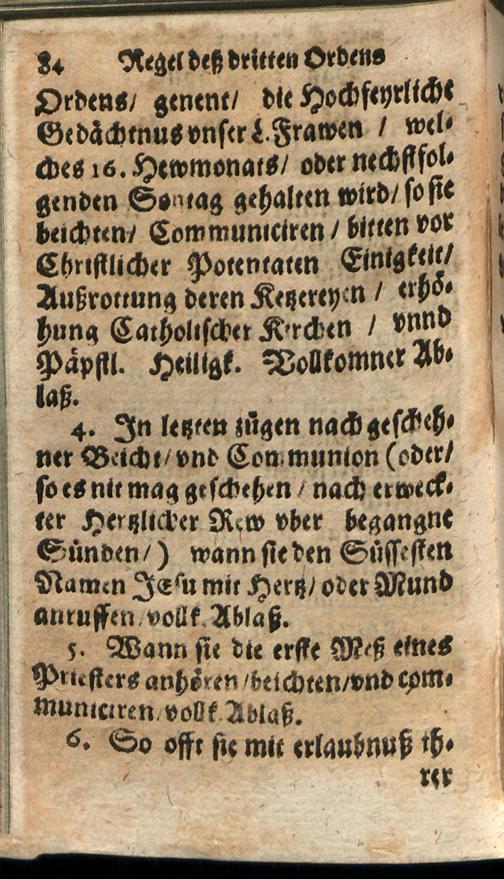 84 Regel deß dritten Ordens
Ordens/ genent/ die Hochfeyrliche
Gedächtnus vnser L. Frawen / wel-
ches 16. Hewmonats/ oder nechstfol-
genden Sontag gehalten wird/ so sie
beichten/ Communiciren / bitten vor
Christlicher Potentaten Einigkeit/
Außrottung deren Ketzereyen / erhö-
hung Catholischer Kirchen / vnnd
Päpstl. Heiligk. Vollkomner Ab-
laß.
4. In letzten zügen nach gescheh-
ner Beicht/ vnd Communion (oder/
so es nit mag geschehen / nach erweck-
ter Hertzlicher Rew vber begangne
Sünden/) wann sie den Süssesten
Namen JEsu mit Hertz/ oder Mund
anruffen/ vollk. Ablaß.
5. Wann sie die erste Meß eines
Priesters anhören/ beichten/ vnd com-
municiren/ vollk. Ablaß.
6. So offt sie mit erlaubnuß ih-
rer